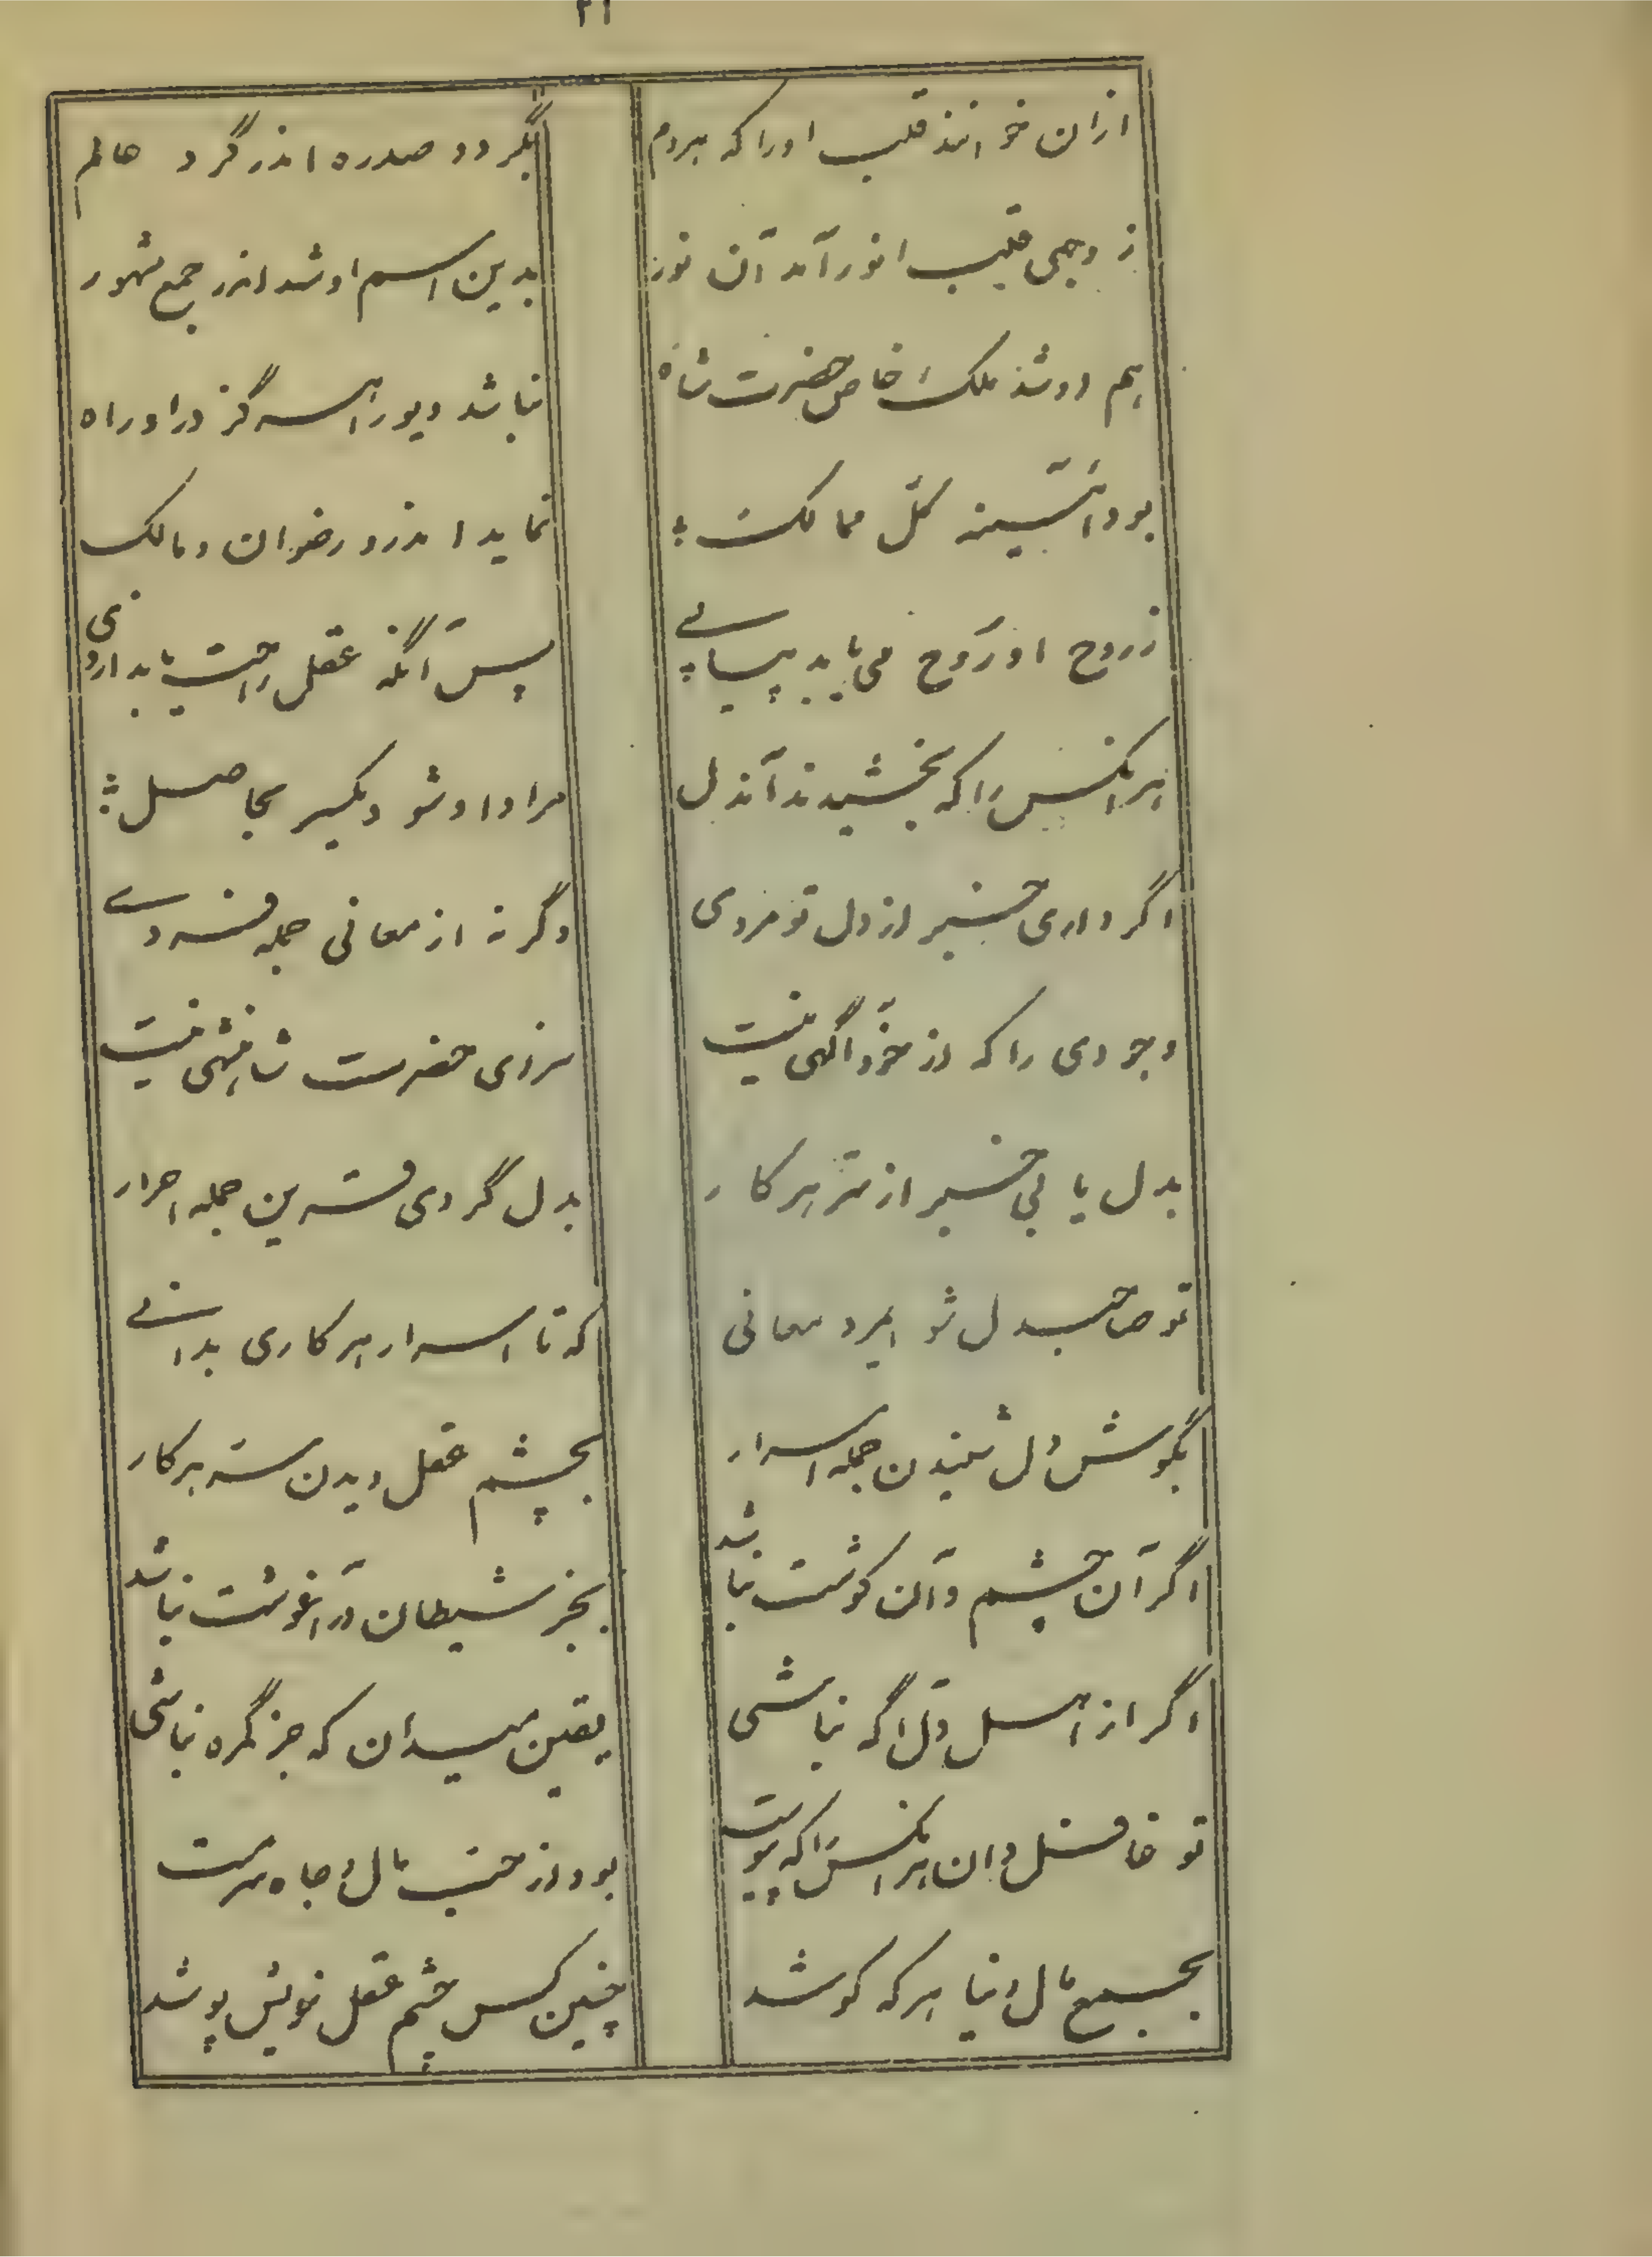 ۳۱
ازان خوانند قلب اورا که هردم بگردد صدره اندر گرد عالم
ز وجهی قلب انور آمد آن نور بدین اسم او شد اندر جمع مشهور
هم او شد ملک خاص حضرت شاه نباشد دیو را هرگز در او راه
بود آئینه کل ممالک نماید اندرو رضوان و مالک
ز روح او رَوح می‌یابد پیاپے پس آنگه عقل راحت یابد از وی
هر آنکس را که بخشیدند آندل مراد او شود یکسر بحاصل
اگر داری خبر از دل تو مردی وگرنه از معانی جمله فردے
وجودی را که از خود آگهی نیست سزای حضرت شاهنشهی نیست
بدل یابی خبر از سر هر کار بدل گردی قرین جمله احرار
تو صاحبدل شو ایمرد معانی که تا اسرار هر کاری بدانے
بگوش دل شنیدن جمله اسرار بچشم عقل دیدن سر هر کار
اگر آن چشم و آن گوشت نباشد بجز شیطان در آغوشت نباشد
اگر از اهل دل آگه نباشی یقین میدان که جز گمره نباشی
تو غافل دان هر آنکس را که پیوست بود از حب مال و جاه سرمست
بجمع مال دنیا هر که کوشد چنین کس چشم عقل خویش پوشد